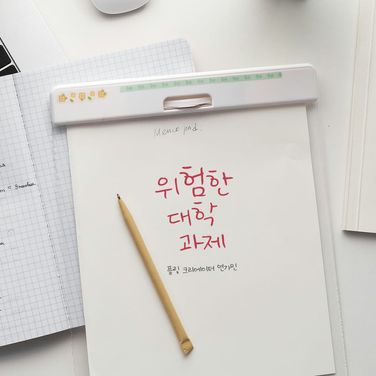 Memo pad.
위험한
대학
과제
플링 크리에이터 연기민